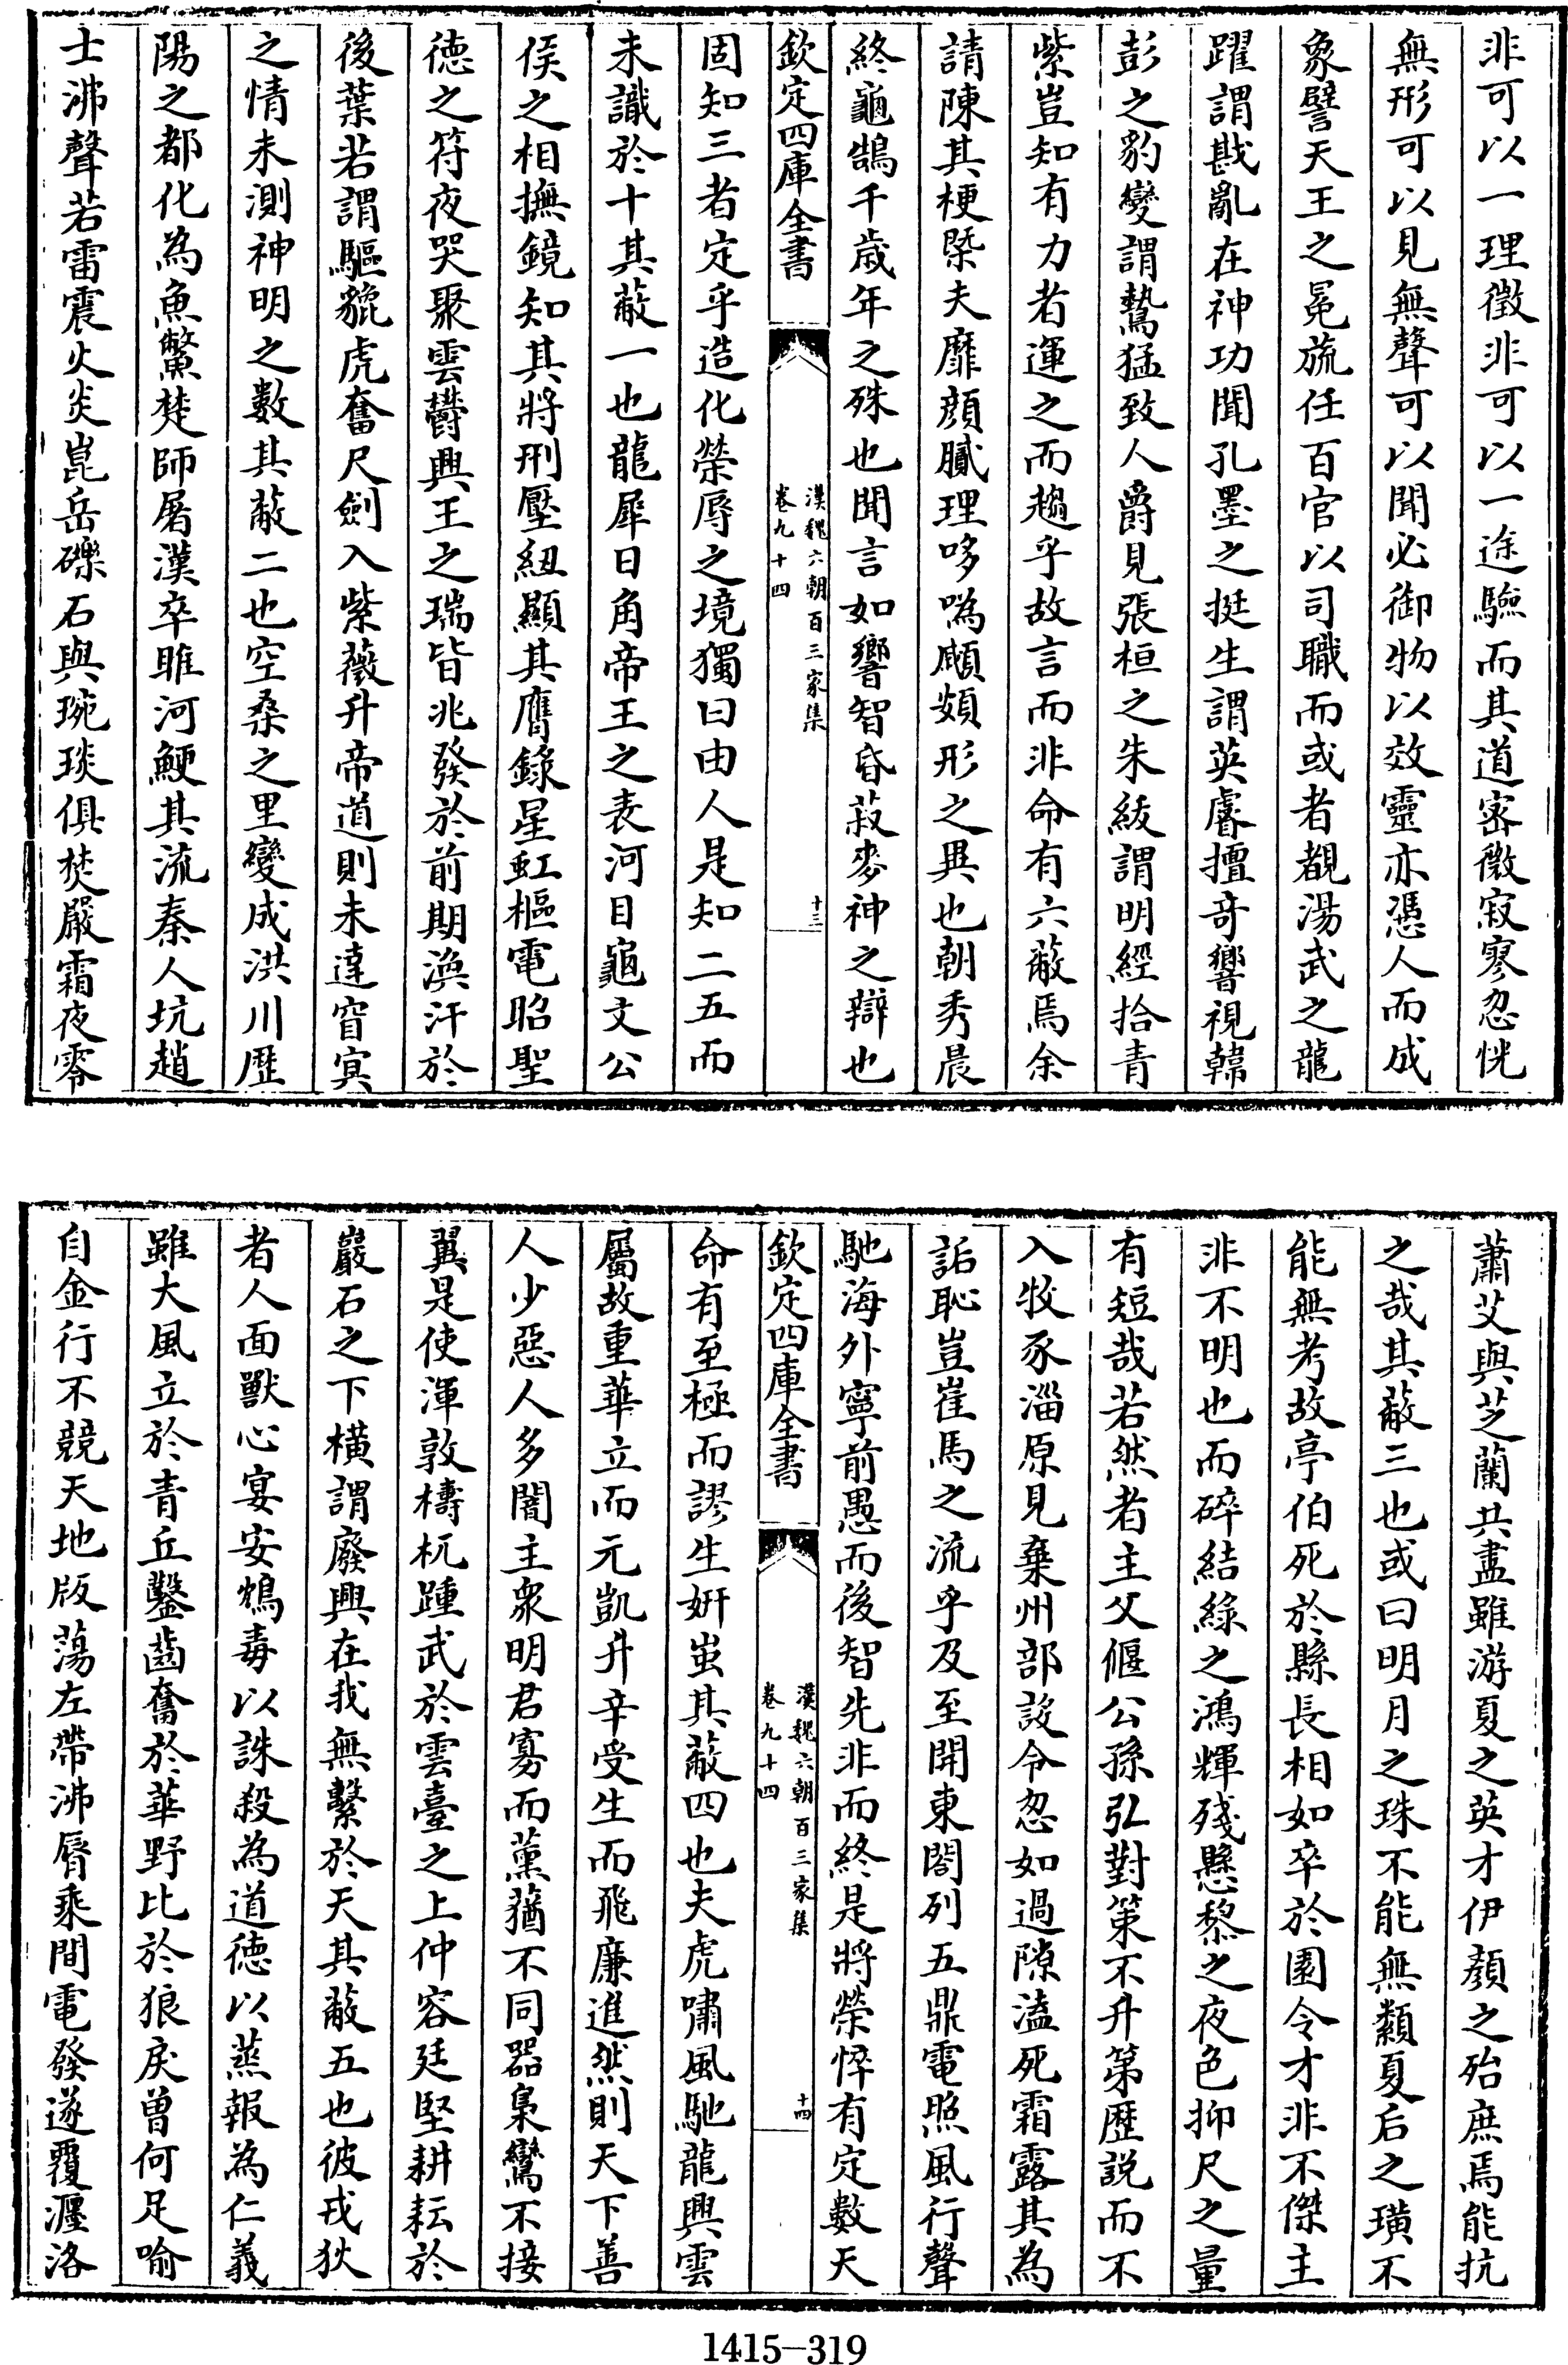 非可以一理徵非可以一途驗而其道密微寂寥忽恍
無形可以見無聲可以聞必御物以效靈亦憑人而成
象譬天王之冕旒任百官以司職而或者覩湯武之龍
躍謂戡亂在神功聞孔墨之挺生謂英睿擅奇響視韓
彭之豹變謂鷙猛致人爵見張桓之朱紱謂明經拾青
紫豈知有力者運之而趨乎故言而非命有六蔽焉余
請陳其梗槩夫靡顔膩理哆噅顑頞形之異也朝秀晨
終龜鵠千歲年之殊也聞言如響智昏菽麥神之辯也
欽定四庫全書
漢魏六朝百三家集
卷九十四
十三
固知三者定乎造化榮辱之境獨曰由人是知二五而
未識於十其蔽一也龍犀日角帝王之表河目龜文公
侯之相撫鏡知其將刑壓紐顯其膺錄星虹樞電昭聖
德之符夜哭聚雲鬱興王之瑞皆兆發於前期渙汗於
後葉若謂驅貔虎奮尺劍入紫薇升帝道則未達窅冥
之情未測神明之數其蔽二也空桑之里變成洪川歷
陽之都化為魚鱉楚師屠漢卒睢河鯁其流秦人坑趙
士沸聲若雷震火炎崑岳礫石與琬琰俱焚嚴霜夜零
蕭艾與芝蘭共盡雖游夏之英才伊顔之殆庶焉能抗
之哉其蔽三也或曰明月之珠不能無纇夏后之璜不
能無考故亭伯死於縣長相如卒於園令才非不傑主
非不明也而碎結綠之鴻輝殘懸黎之夜色抑尺之量
有短哉若然者主父偃公孫弘對策不升第歷說而不
入牧豕淄原見棄州部設令忽如過隙溘死霜露其為
詬恥豈崔馬之流乎及至開東閤列五鼎電照風行聲
馳海外寧前愚而後智先非而終是將榮悴有定數天
欽定四庫全書
漢魏六朝百三家集
卷九十四
十四
命有至極而謬生妍蚩其蔽四也夫虎嘯風馳龍興雲
屬故重華立而元凱升辛受生而飛廉進然則天下善
人少惡人多闇主衆明君寡而薰蕕不同器梟鸞不接
翼是使渾敦檮杌踵武於雲臺之上仲容廷堅耕耘於
巖石之下橫謂廢興在我無繫於天其蔽五也彼戎狄
者人面獸心宴安鴆毒以誅殺為道德以蒸報為仁義
雖大風立於青丘鑿齒奮於華野比於狼戾曾何足喻
自金行不競天地版蕩左帶沸脣乘間電發遂覆瀍洛
1415-319